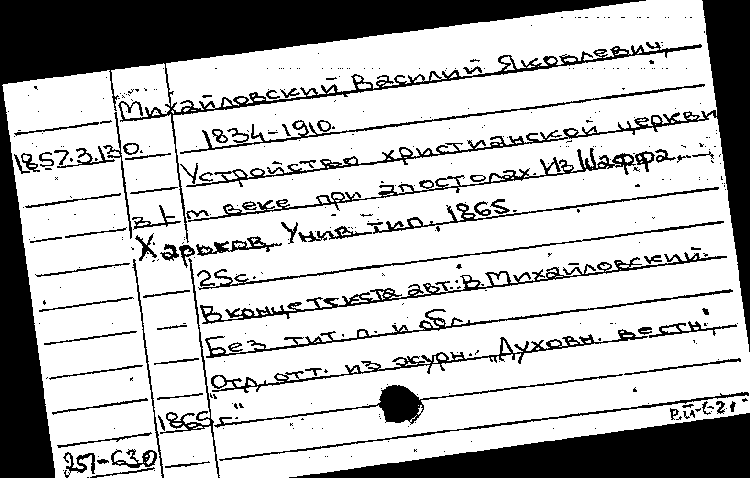 Михайловский, Василий Яковлевич,
1834-1910.
18.57.3.130.
Устройство христианской церкви
в I-м веке при апостолах. Из Шаффа.
Харьков, Унив. тип., 1865.
25с.
В конце текста авт.: В. Михайловский.
Без тит. л. и обл.
Отд. отт. из журн.: "Духовн. вестн.",
1865 г."
251-630